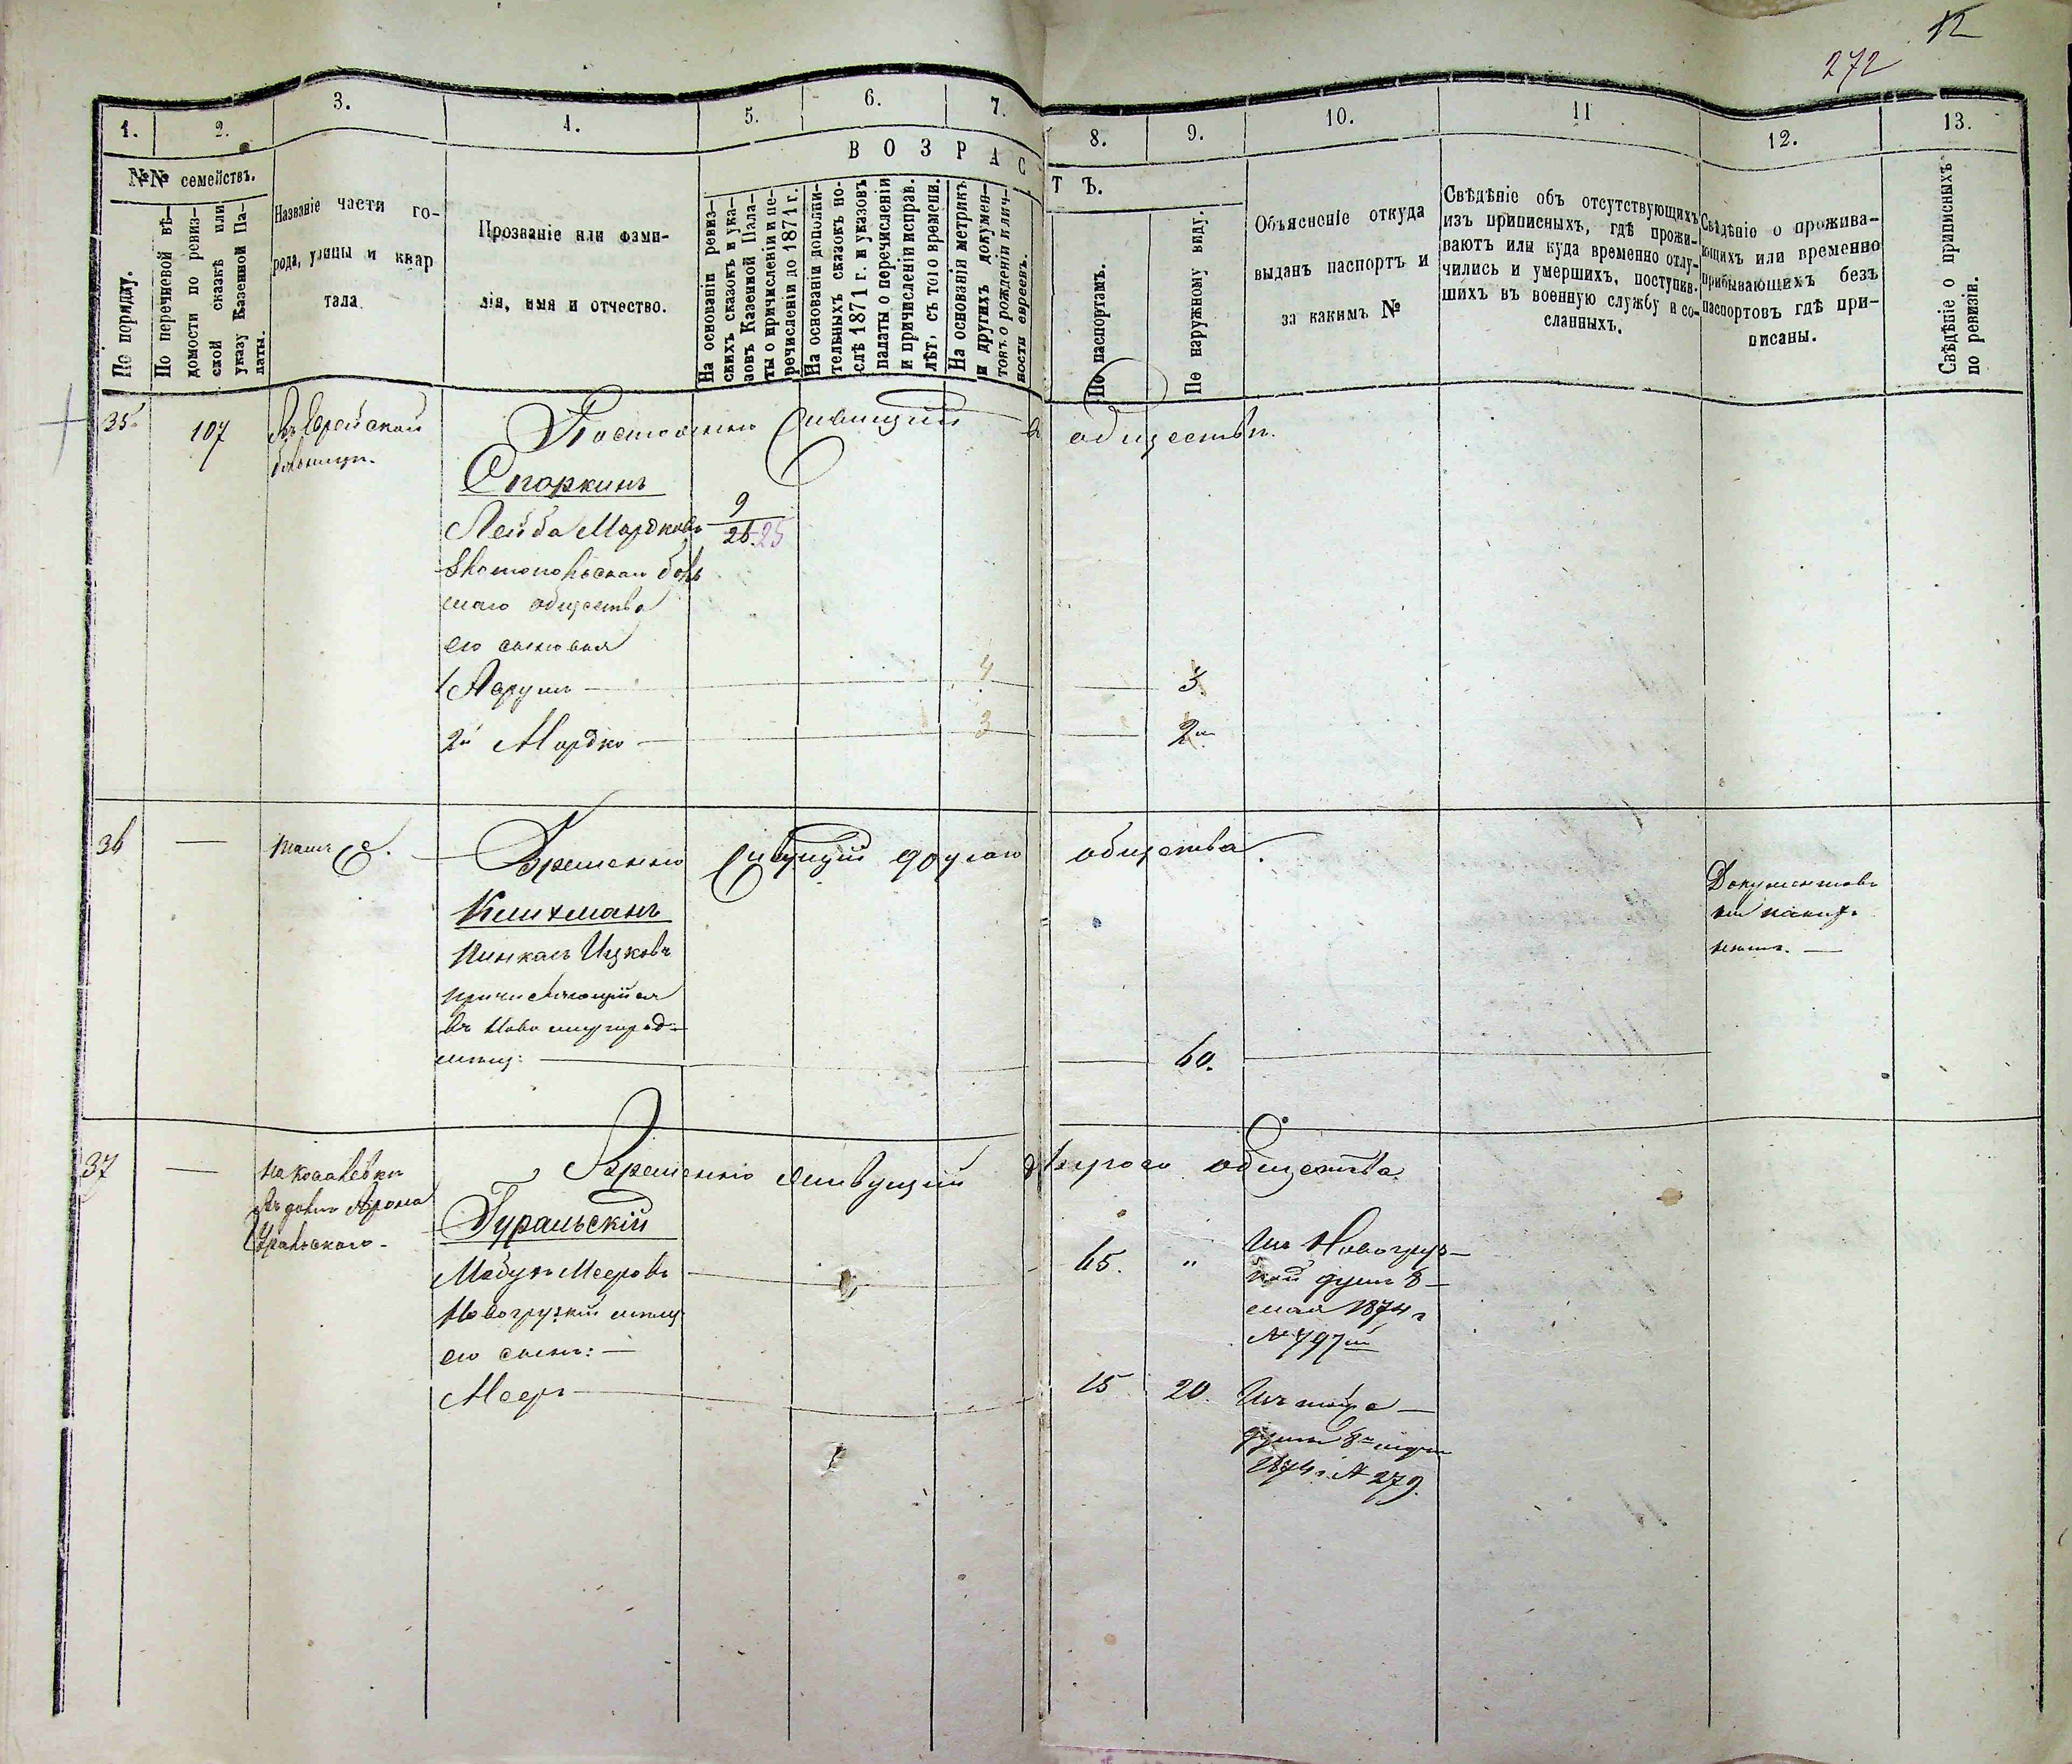 12
272
1.
2.
3.
4.
5.
6.
7.
8.
9.
10.
11
12.
13.
ВОЗРАС
ТЪ.
№№ семействъ.
По порядку.
По перечневой вѣ-
домости по ревиз-
ской сказкѣ или
указу Казенной Па-
латы.
Названіе части го-
рода, улицы и квар
тала.
Прозваніе или фами-
лія, имя и отчество.
На основаніи ревиз-
скихъ сказокъ и ука-
зовъ Казенной Пала-
ты о причисленіи и пе-
речисленіи до 1871 г.
На основаніи дополни-
тельныхъ сказокъ по-
слѣ 1871 г. и указовъ
палаты о перечисленіи
и причисленіи исправ.
лѣт, съ того времени.
На основаніи метрикъ
и другихъ докумен-
товъ о рожденіи и лич-
ности евреевъ.
По паспортамъ.
По наружному виду.
Объясненіе откуда
выданъ паспортъ и
за какимъ №
Свѣдѣніе объ отсутствующихъ
изъ приписныхъ, гдѣ прожи-
ваютъ или куда временно отлу-
чились и умершихъ, поступив-
шихъ въ военную службу и со-
сланныхъ.
Свѣдѣніе о прожива-
ющихъ или временно
прибывающихъ безъ
паспортовъ гдѣ при-
писаны.
Свѣдѣніе о приписныхъ
по ревизіи.
35.
107
Въ Еврейской
больницѣ.
Постоянно живущій обществѣ.
Огаркинъ
Лейба Мордковъ
9
26. 25
общества
его сыновья
1 Нарумъ
4
3.
2й Мордко
3
2
36
—
тамъ же.
Временно живущій другаго общества.
Клихманъ
Пинкасъ Ицковъ
причисляющійся
60.
Документовъ
37
—
Въ домѣ Арона
Гуральскаго.
Временно живущій другого общества.
Гуральскій
Мееровъ
его сынъ: —
Мееръ
65.
"
Изъ
думы 8
мая 1874 г
№ 797
15
20.
Изъ той же
думы 8
1874 г. № 279.